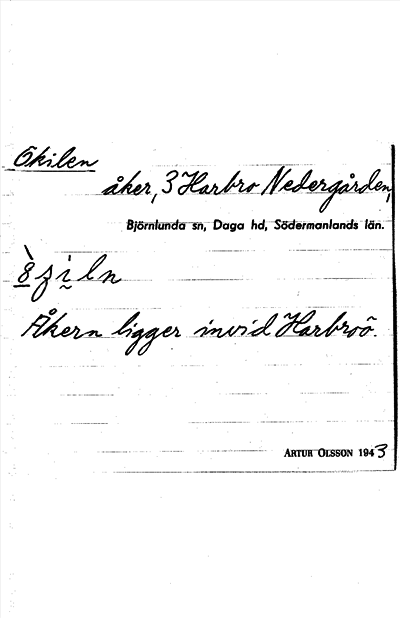 Ökilen
åker, 3 Harbro Nedergården,
Björnlunda sn, Daga hd, Södermanlands län.
Åkern ligger invid Harbroö.
ARTUR OLSSON 1943